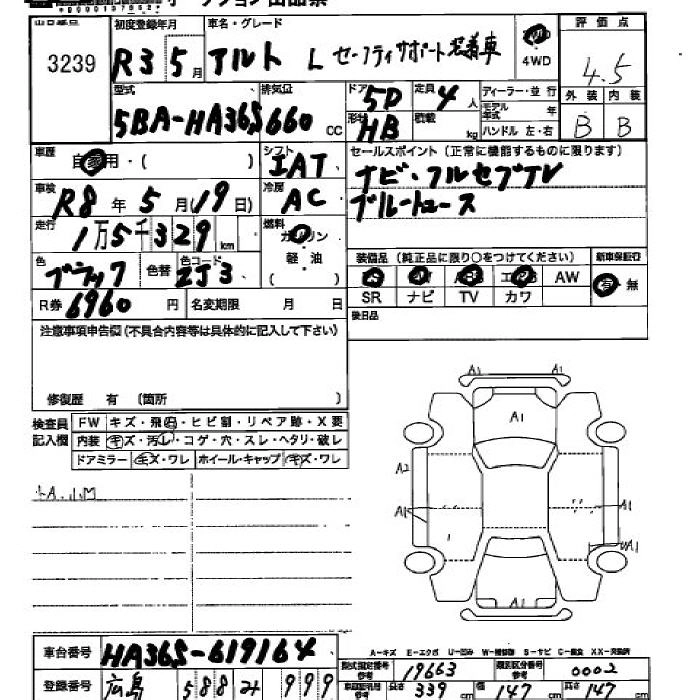 オークション出品票
出品番号
3239
初度登録年月
R3 5月
車名・グレード
アルト L セーフティサポート装着車
4WD
評価点
4.5
外装 内装
B B
型式
5BA-HA36S
排気量
660 cc
ドア
5D
定員
4人
形状
HB
積載
kg
ディーラー・並行
モデル年式 年
ハンドル 左・右
車歴
自家用・( )
シフト
IAT
セールスポイント(正常に機能するものに限ります)
ナビ・フルセグTV
ブルートゥース
車検
R8年 5月 19日)
冷房
AC
走行
1万5千329km
燃料
ガソリン
軽油
( )
色
ブラック
色替
色コード
ZJ3
装備品 (純正品に限り○をつけてください)
AW
SR ナビ TV カワ
新車保証書
有・無
R券 6960円
名変期限 月 日
後日品
注意事項申告欄(不具合内容等は具体的に記入して下さい)
修復歴 有 (箇所 )
検査員記入欄
FW キズ・飛石・ヒビ割・リペア跡・X要
内装 キズ・汚レ・コゲ・穴・スレ・ヘタリ・破レ
ドアミラー キズ・ワレ ホイール・キャップ キズ・ワレ
小A.小M
A1 A1
A1
A2
A1 A1
A1
A1
車台番号
HA36S-619164
A-キズ E-エクボ U-凹ミ W-補修跡 S-サビ C-腐食 XX-交換済
登録番号
広島 588 み 999
型式指定番号
19663
類別区分番号
0002
長さ 339 cm 147 cm 高さ 147 cm